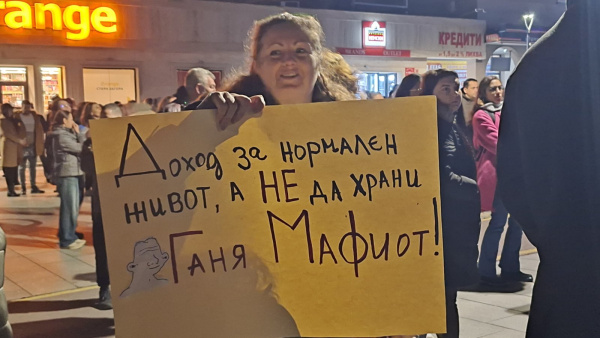 range
КРЕДИТИ
Доход за нормален
живот, а НЕ да храни
Ганя Мафиот!